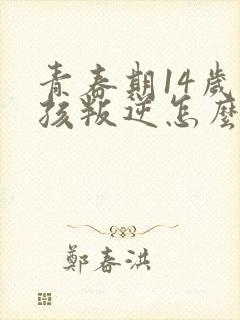 青春期14歲
孩叛逆怎麼
鄭春洪